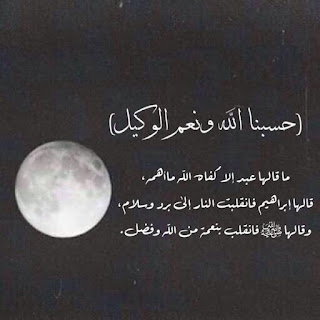 (حسبنا الله ونعم الوكيل)
ما قالها عبد إلا كفاه الله ما اهمه،
قالها إبراهيم فانقلبت النار إلى برد وسلام،
وقالها ﷺ فانقلب بنعمة من الله وفضل.